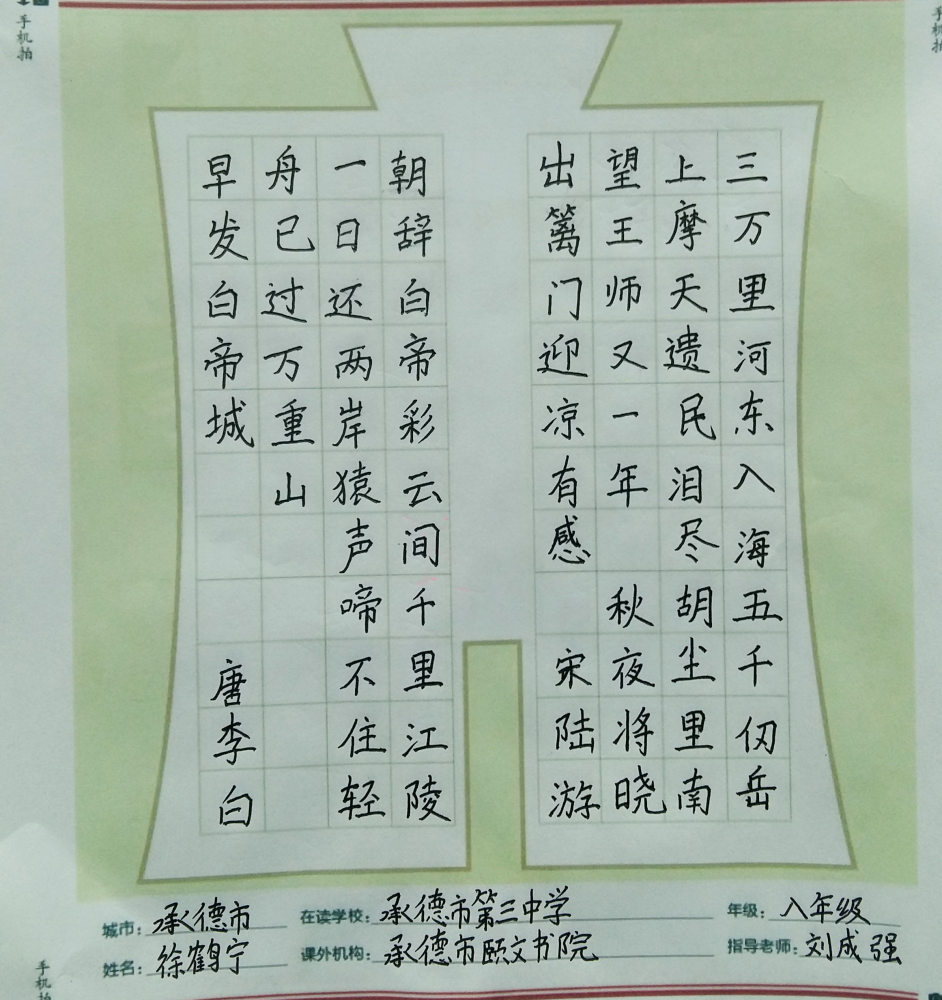 手机拍
手机拍
三万里河东入海五千仞岳
上摩天遗民泪尽胡尘里南
望王师又一年 秋夜将晓
出篱门迎凉有感 宋陆游
朝辞白帝彩云间千里江陵
一日还两岸猿声啼不住轻
舟已过万重山
早发白帝城 唐李白
城市：承德市 在读学校：承德市第三中学 年级：八年级
姓名：徐鹤宁 课外机构：承德市颐文书院 指导老师：刘成强
手机拍